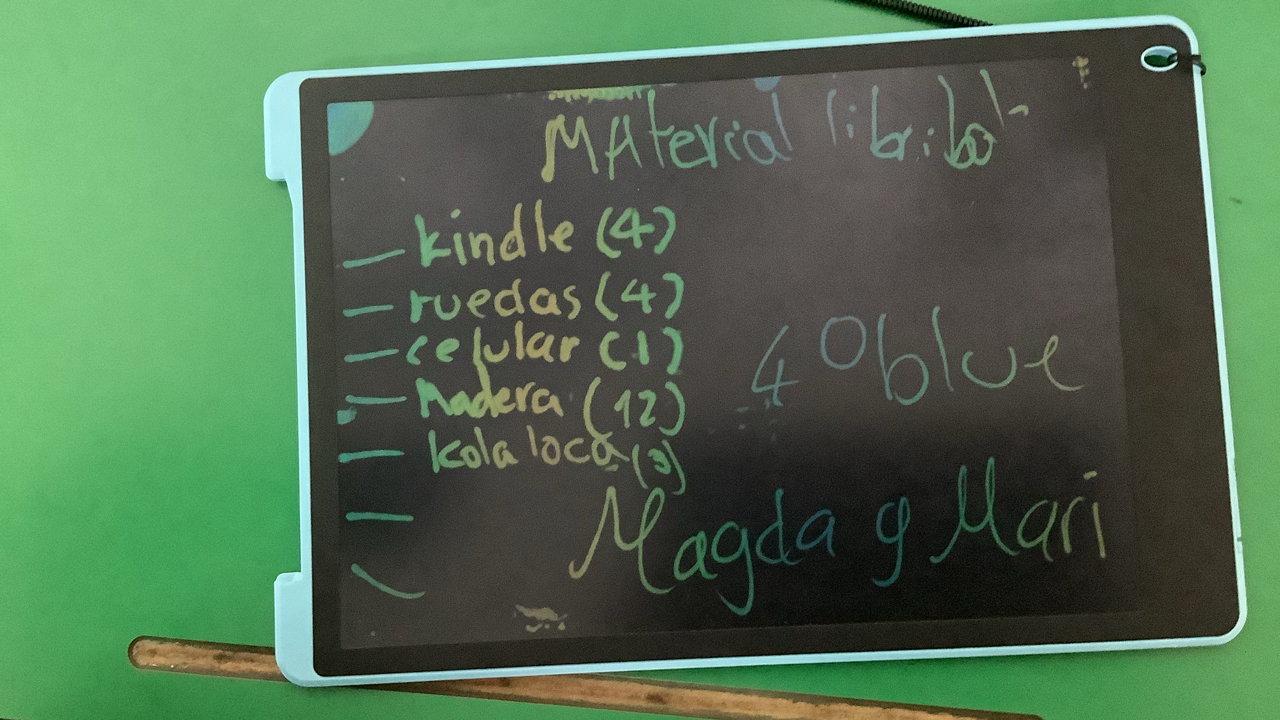 MAterial libribot
— kindle (4)
— ruedas (4)
— celular (1)
— Madera (12)
— kola loca (3)
4º blue
Magda y Mari